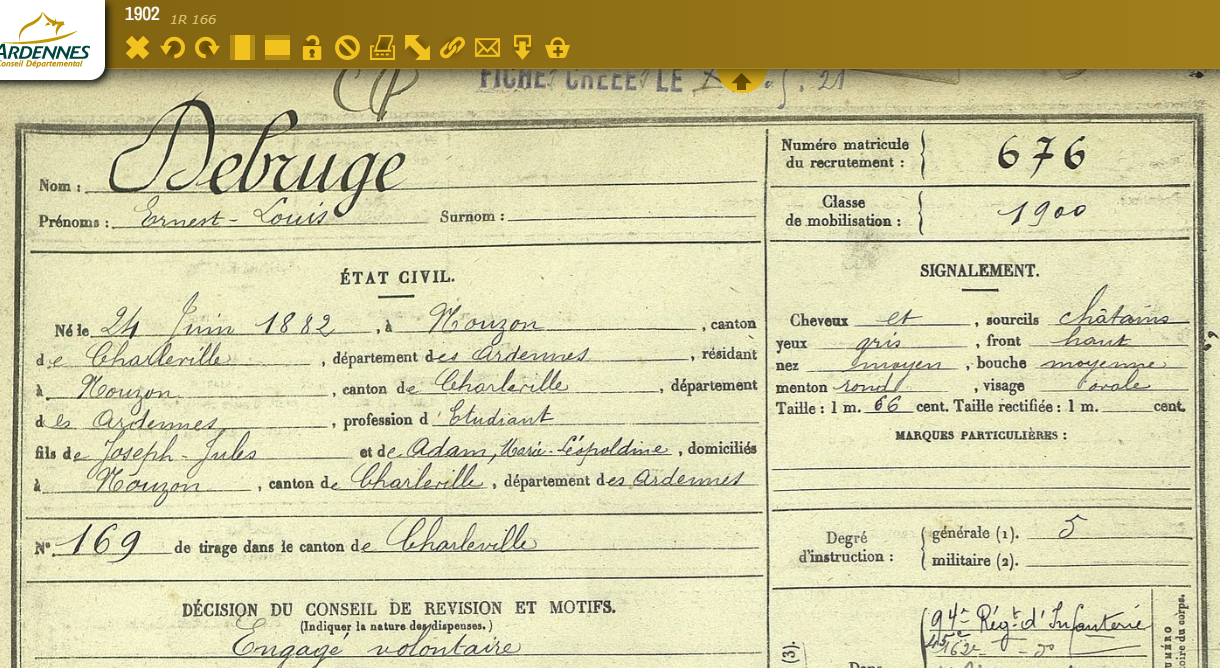 1902 1R 166
ARDENNES
Conseil Départemental
FICHE CREEE LE
Debruge
Nom :
Prénoms : Ernest-Louis Surnom :
Numéro matricule
du recrutement : 676
Classe
de mobilisation : 1900
ÉTAT CIVIL.
Né le 24 Juin 1882, à Nouzon, canton
de Charleville, département des Ardennes, résidant
à Nouzon, canton de Charleville, département
des Ardennes, profession d'Etudiant
fils de Joseph-Jules et de Adam, Marie-Léopoldine, domiciliés
à Nouzon, canton de Charleville, département des Ardennes
N° 169 de tirage dans le canton de Charleville
DÉCISION DU CONSEIL DE REVISION ET MOTIFS.
(Indiquer la nature des dispenses.)
Engagé volontaire
SIGNALEMENT.
Cheveux et, sourcils châtains
yeux gris, front haut
nez moyen, bouche moyenne
menton rond, visage ovale
Taille : 1 m. 66 cent. Taille rectifiée : 1 m. cent.
MARQUES PARTICULIÈRES :
Degré
d'instruction :
générale (1). 5
militaire (2).
94e Régt d'Infanterie
(3).
Dans